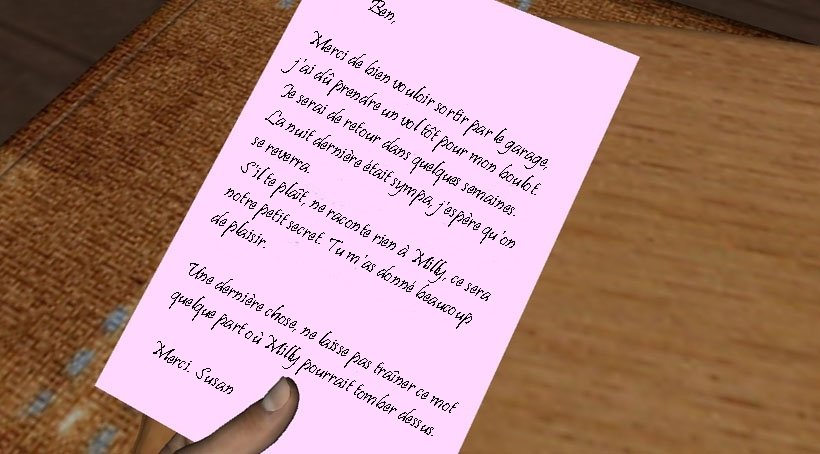 Ben,
Merci de bien vouloir sortir par le garage,
j'ai dû prendre un vol tôt pour mon boulot.
Je serai de retour dans quelques semaines.
La nuit dernière était sympa, j'espère qu'on
se reverra.
S'il te plaît, ne raconte rien à Milly, ce sera
notre petit secret. Tu m'as donné beaucoup
de plaisir.
Une dernière chose, ne laisse pas traîner ce mot
quelque part où Milly pourrait tomber dessus.
Merci. Susan